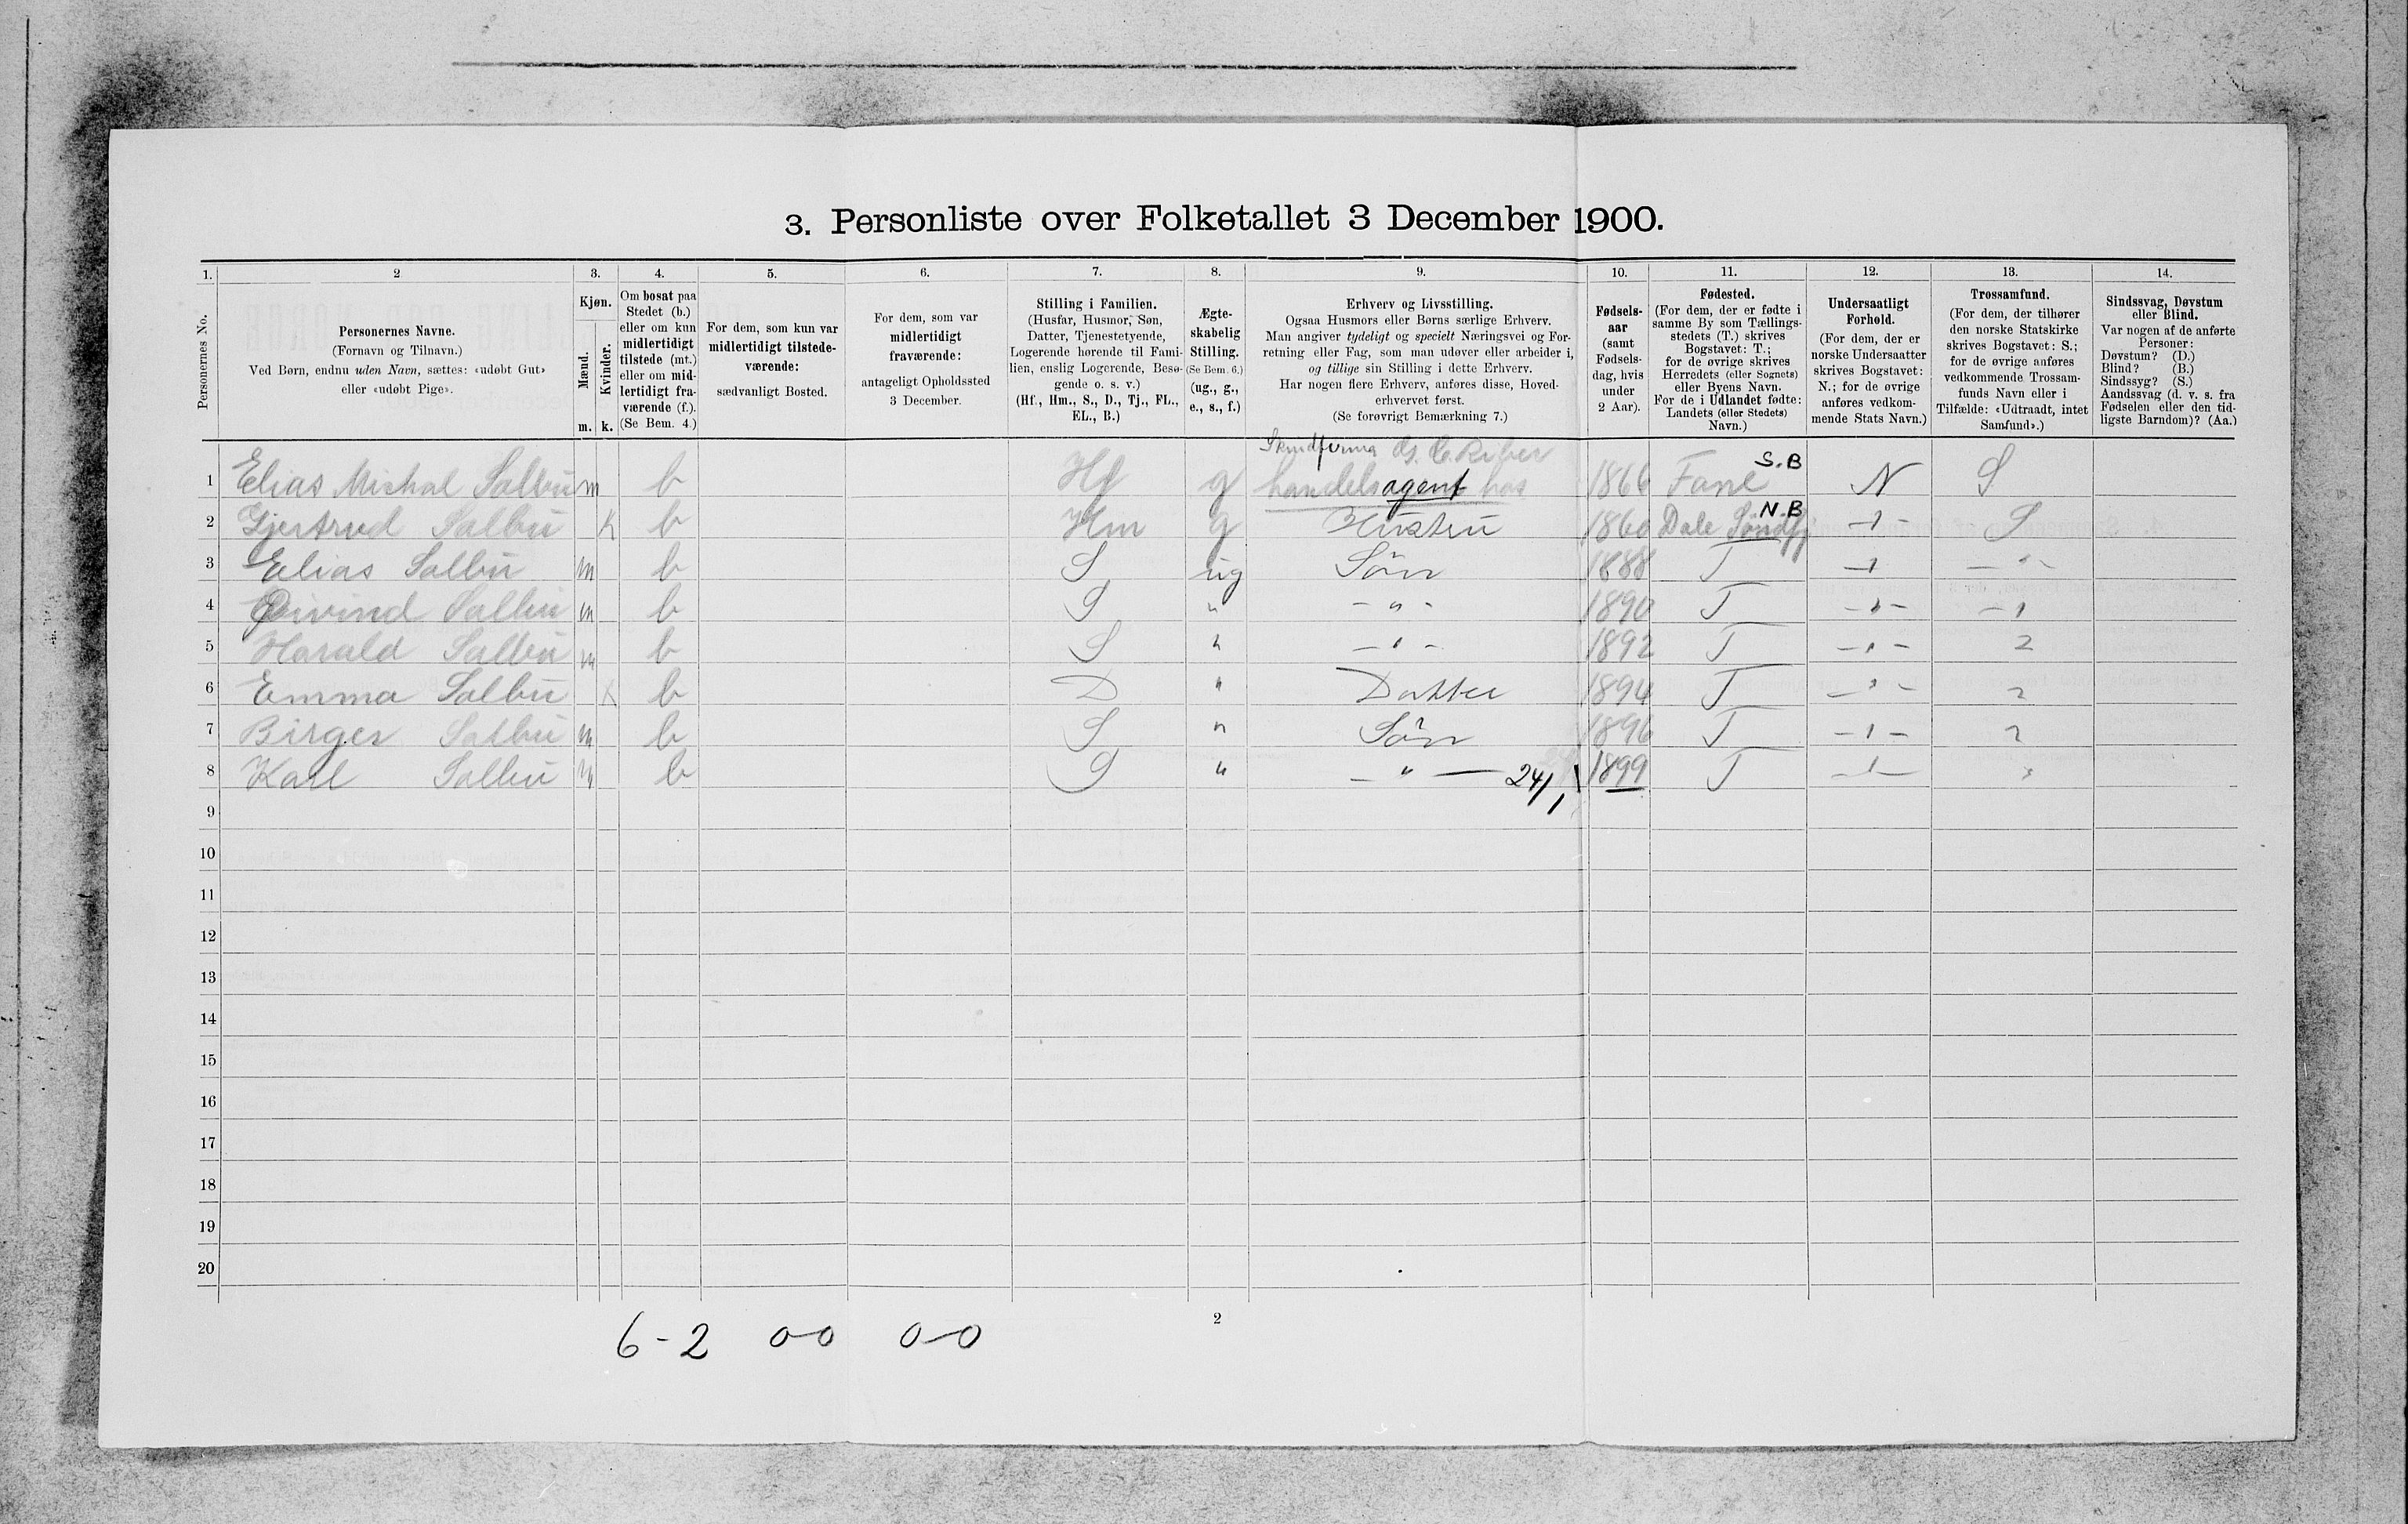 3. Personliste over Folketallet 3 December 1900.
1. 2 3. 4. 5. 6. 7. 8. 9. 10. 11. 12. 13. 14.
Personernes No.
Personernes Navne.
(Fornavn og Tilnavn.)
Ved Børn, endnu uden Navn, sættes: «udøbt Gut»
eller «udøbt Pige».
Kjøn.
Mænd.
Kvinder.
m. k.
Om bosat paa
Stedet (b.)
eller om kun
midlertidigt
tilstede (mt.)
eller om mid-
lertidigt fra-
værende (f.).
(Se Bem. 4.)
For dem, som kun var
midlertidigt tilstede-
værende:
sædvanligt Bosted.
For dem, som var
midlertidigt
fraværende:
antageligt Opholdssted
3 December.
Stilling i Familien.
(Husfar, Husmor, Søn,
Datter, Tjenestetyende,
Logerende hørende til Fami-
lien, enslig Logerende, Besø-
gende o. s. v.)
(Hf., Hm., S., D., Tj., FL.,
EL., B.)
Ægte-
skabelig
Stilling.
(Se Bem. 6.)
(ug., g.,
e., s., f.)
Erhverv og Livsstilling.
Ogsaa Husmors eller Børns særlige Erhverv.
Man angiver tydeligt og specielt Næringsvei og For-
retning eller Fag, som man udøver eller arbeider i,
og tillige sin Stilling i dette Erhverv.
Har nogen flere Erhverv, anføres disse, Hoved-
erhvervet først.
(Se forøvrigt Bemærkning 7.)
Fødsels-
aar
(samt
Fødsels-
dag, hvis
under
2 Aar).
Fødested.
(For dem, der er fødte i
samme By som Tællings-
stedets (T.) skrives
Bogstavet: T.;
for de øvrige skrives
Herredets (eller Sognets)
eller Byens Navn.
For de i Udlandet fødte:
Landets (eller Stedets)
Navn.)
Undersaatligt
Forhold.
(For dem, der er
norske Undersaatter
skrives Bogstavet:
N.; for de øvrige
anføres vedkom-
mende Stats Navn.)
Trossamfund.
(For dem, der tilhører
den norske Statskirke
skrives Bogstavet: S.;
for de øvrige anføres
vedkommende Trossam-
funds Navn eller i
Tilfælde: «Udtraadt, intet
Samfund».)
Sindssvag, Døvstum
eller Blind.
Var nogen af de anførte
Personer:
Døvstum? (D.)
Blind? (B.)
Sindssyg? (S.)
Aandssvag (d. v. s. fra
Fødselen eller den tid-
ligste Barndom)? (Aa.)
S.B
1 Elias Michal Salbu m b Hf g handelsagent hos 1866 Fane N S
N.B
2 Gjertrud Salbu K b Hm g Hustru 1860 Dale Søndfj -"- S
3 Elias Salbu m b S ug Søn 1888 T -" -"-
4 Øivind Salbu m b S " -"- 1890 T -"- -"
5 Harald Salbu m b S " -"- 1892 T -"- "
6 Emma Salbu K b D " Datter 1894 T -"- "
7 Birger Salbu m b S " Søn 1896 T -"- "
8 Karl Salbu m b S " -"- 24/1 1899 T -"- "
9
10
11
12
13
14
15
16
17
18
19
20
2
6-2 0-0 0-0